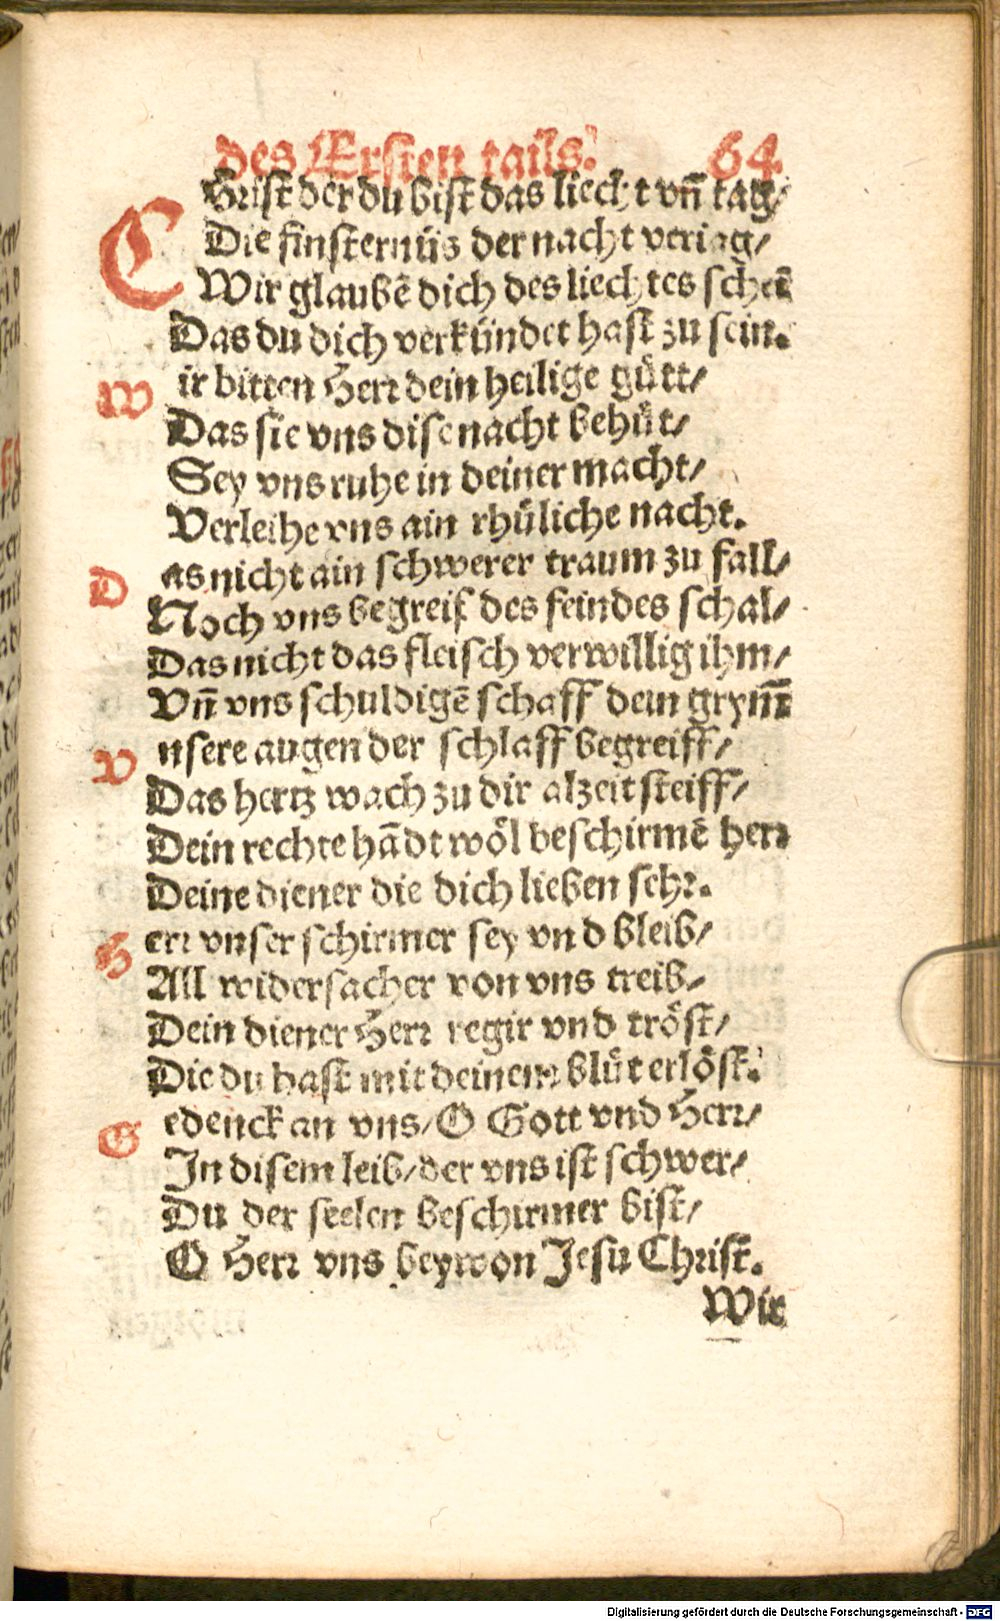 des Ersten tails. 64.
CHrist der du bist das liecht vñ tag/
Die finsternüs der nacht veriag/
Wir glaubē dich des liechtes scheī
Das du dich verkündet hast zu sein.
Wir bitten Herr dein heilige gütt/
Das sie vns dise nacht behüt/
Sey vns ruhe in deiner macht/
Verleihe vns ain rhüliche nacht.
Das nicht ain schwerer traum zu fall/
Noch vns begreif des feindes schal/
Das nicht das fleisch verwillig ihm/
Vñ vns schuldigē schaff dein grym̄
Vnsere augen der schlaff begreiff/
Das hertz wach zu dir alzeit steiff/
Dein rechte hādt wöl beschirmē herr
Deine diener die dich lieben sehr.
Herr vnser schirmer sey vnd bleib/
All widersacher von vns treib/
Dein diener Herr regir vnd tröst/
Die du hast mit deinem blüt erlöst.
Gedenck an vns/ O Gott vnd Herr/
In disem leib/ der vns ist schwer/
Du der seelen beschirmer bist/
O Herr vns beywon Jesu Christ.
Wir
Digitalisierung gefördert durch die Deutsche Forschungsgemeinschaft - DFG